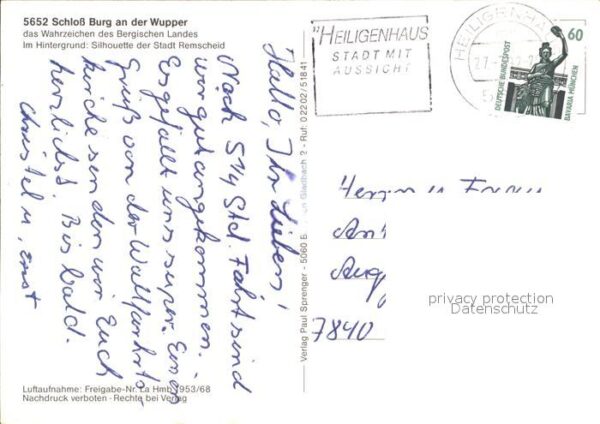 5652 Schloß Burg an der Wupper
das Wahrzeichen des Bergischen Landes
Im Hintergrund: Silhouette der Stadt Remscheid
Hallo, Ihr Lieben!
Nach 5 1/4 Std. Fahrt sind
wir gut angekommen.
Es gefällt uns super. Einen
Gruß von der Wallfahrts-
kirche senden wir Euch
herzlichst. Bis bald.
Christel u. Ernst
Luftaufnahme: Freigabe-Nr. La Hmb 1953/68
Nachdruck verboten · Rechte bei Verlag
Verlag Paul Sprenger - 5060 Gladbach 2 - Ruf: 02202/51841
HEILIGENHAUS
STADT MIT
AUSSICHT
HEILIGENHAUS
60
DEUTSCHE BUNDESPOST
BAVARIA MÜNCHEN
Herrn u.
7840
privacy protection
Datenschutz